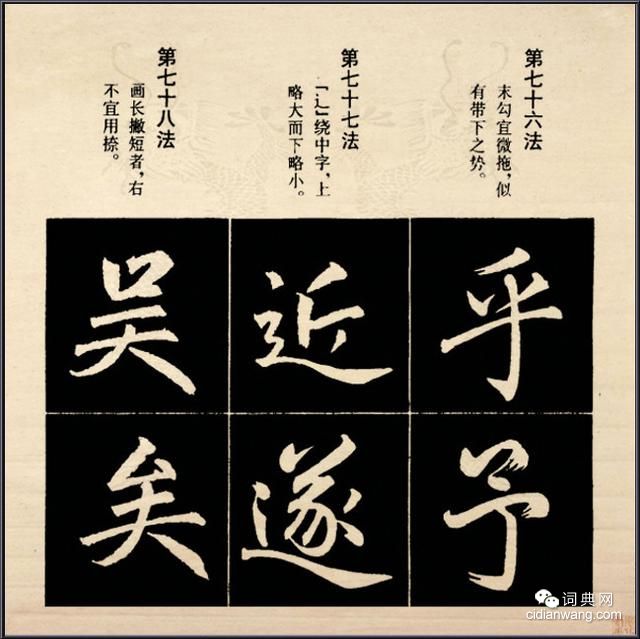 第七十六法
末勾宜微拖，似
有带下之势。
第七十七法
「辶」绕中字，上
略大而下略小。
第七十八法
画长撇短者，右
不宜用捺。
乎
予
近
遂
吴
矣
词典网
cidianwang.com